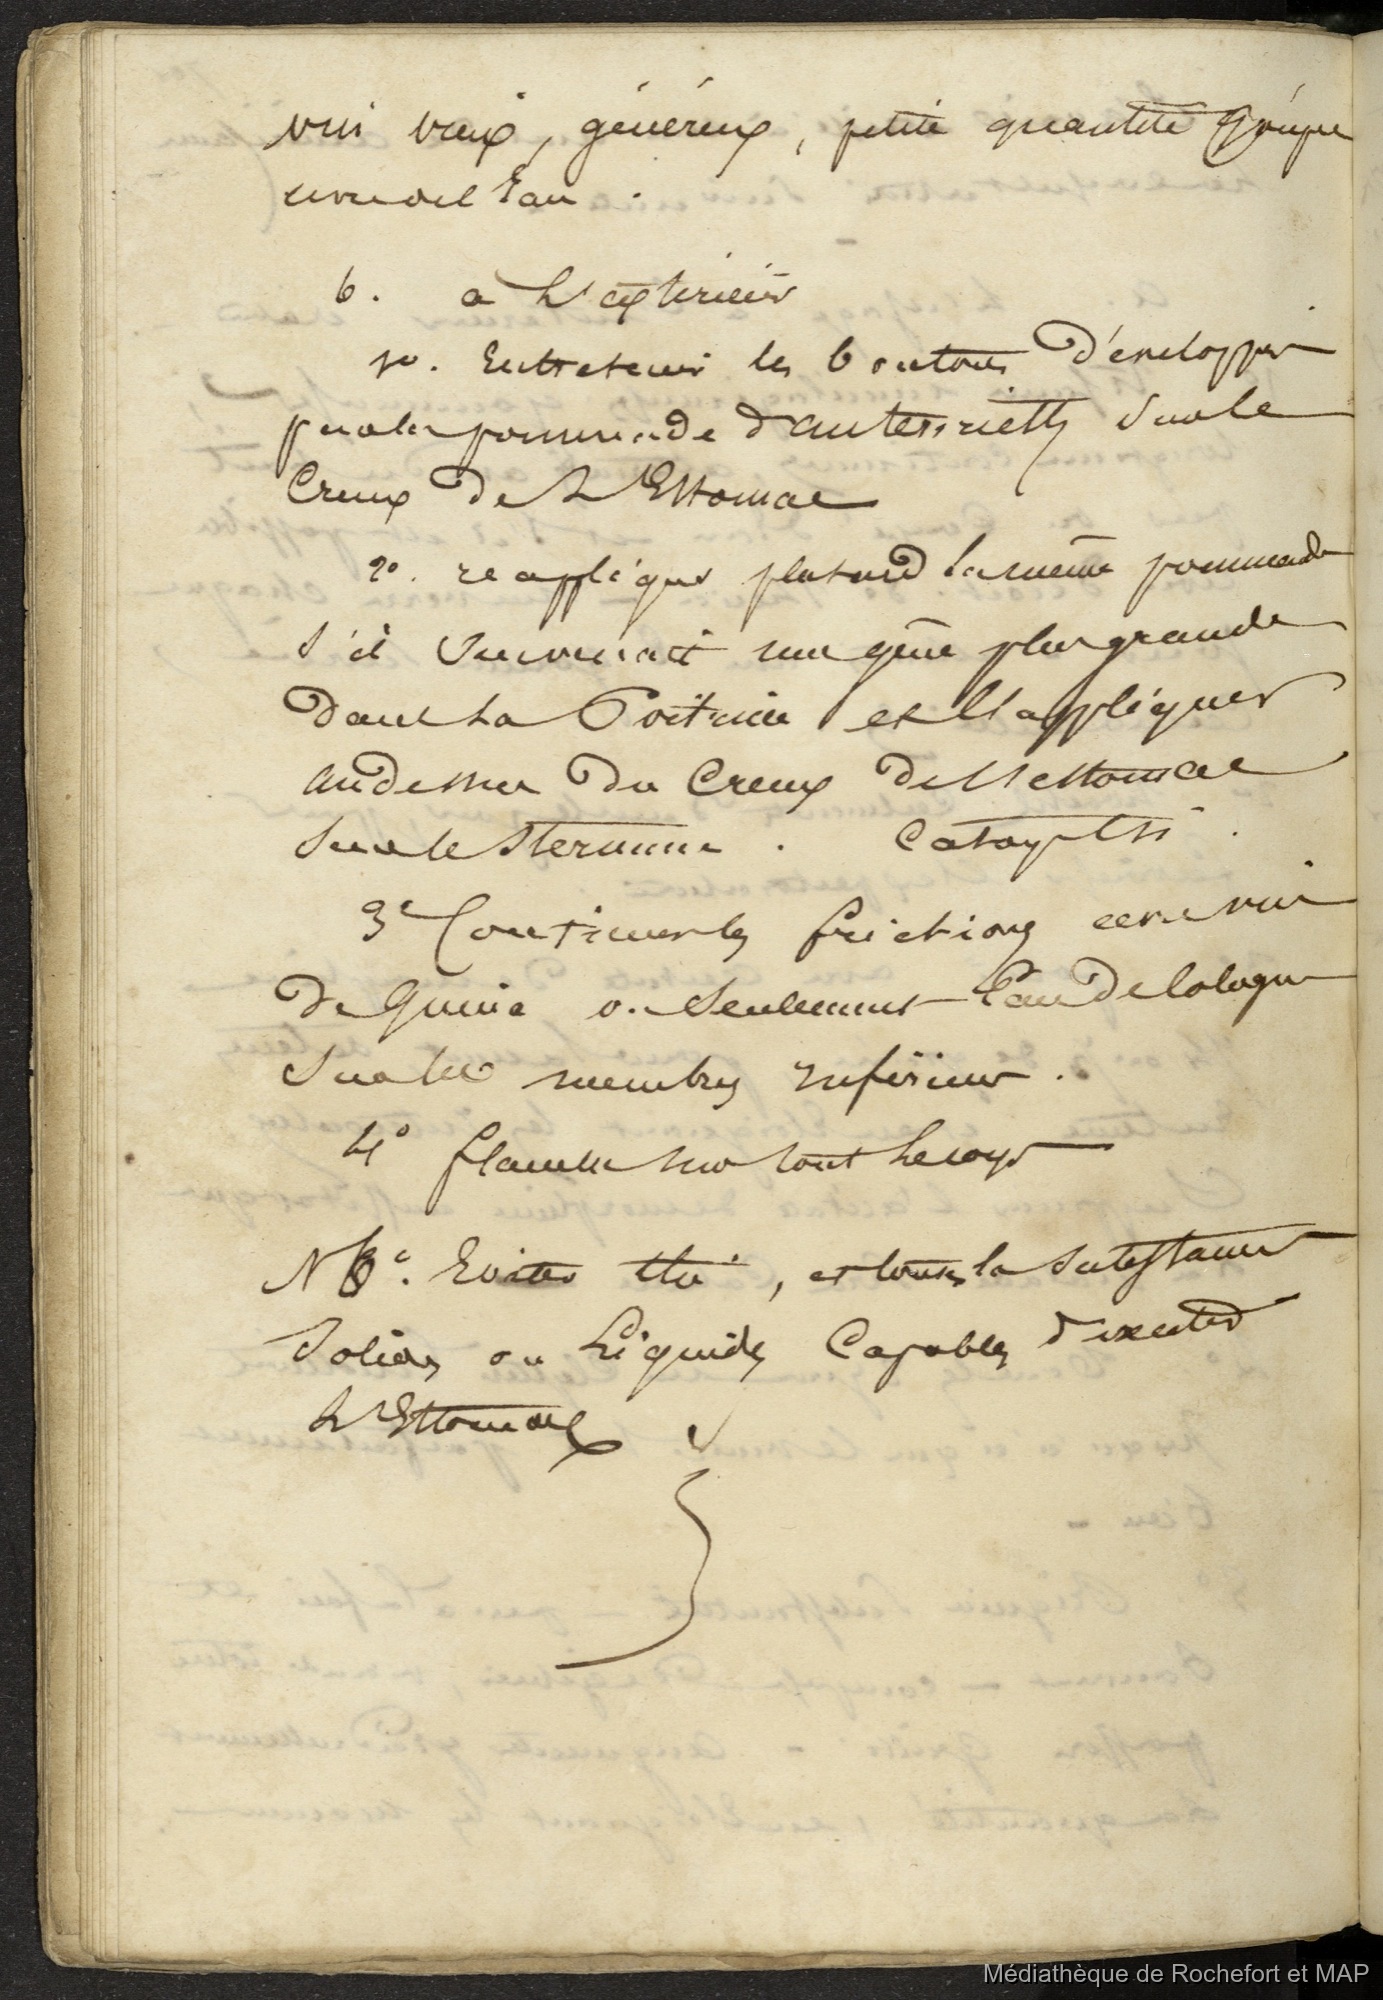 vin vieux, généreux, petite quantité Coupé
avec del Eau.
b. a L'extérieur
1o. Entretenir les boutons D'éveloppés
par la pommade d'autenrieth Sur le
Creux De L'Estomac
2o. reappliquer plutard la même pommade
s'il Survenait une gêne plus grande
Dans La Poitrine et l'appliquer
audessus Du Creux De l'estomac
Sur le Sternum. Cataplasme.
3e Continuer les frictions avec vin
De Quina ou Seulement Eau De Cologne
Sur les membres inférieurs.
4o flanelle sur tout Le corps
NBa. Eviter thé, et toutes les Substances
Solides ou Liquides Capables D'exciter
L'Estomac
Médiathèque de Rochefort et MAP